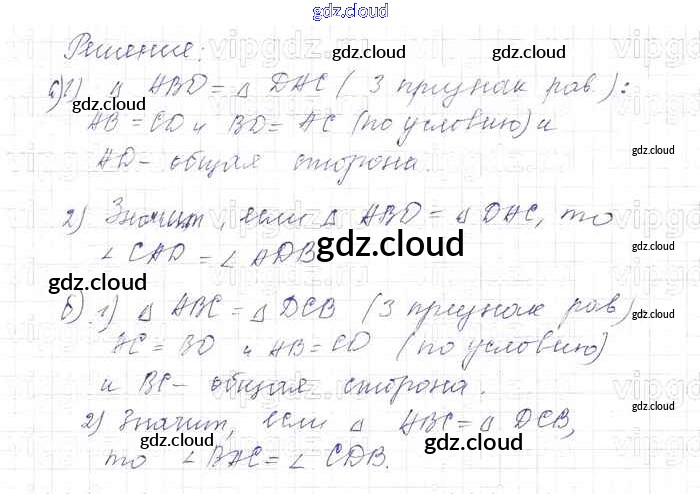 gdz.cloud
Решение:
а) 1) Δ ABD = Δ DAC (3 признак рав.):
AB = CD и BD = AC (по условию) и
AD - общая сторона.
2) Значит, если Δ ABD = Δ DAC, то
∠ CAD = ∠ ADB
б) 1) Δ ABC = Δ DCB (3 признак рав)
AC = BD и AB = CD (по условию)
и BC - общая сторона.
2) Значит, если Δ ABC = Δ DCB,
то ∠ BAC = ∠ CDB.
gdz.cloud
gdz.cloud
gdz.cloud
gdz.cloud
gdz.cloud
gdz.cloud
gdz.cloud
gdz.cloud
gdz.cloud
gdz.cloud
gdz.cloud
gdz.cloud